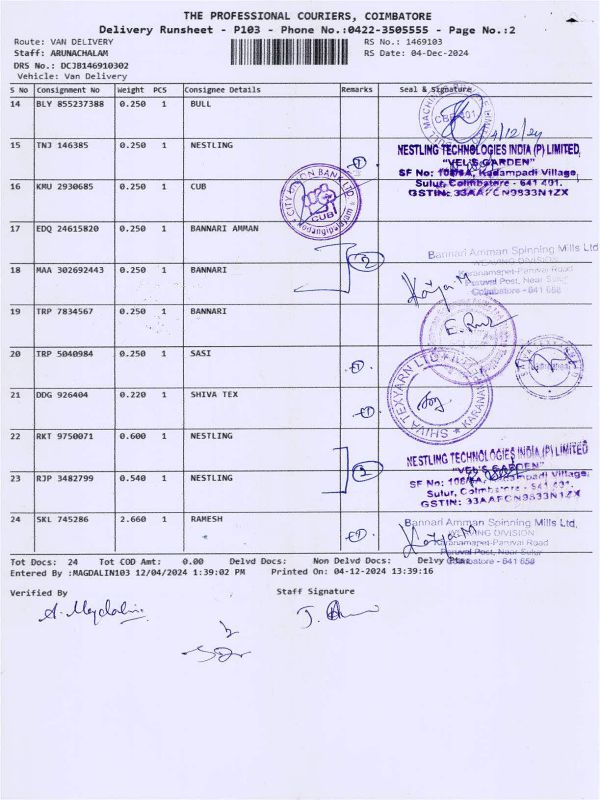 THE PROFESSIONAL COURIERS, COIMBATORE
Delivery Runsheet - P103 - Phone No.:0422-3505555 - Page No.:2
Route: VAN DELIVERY RS No.: 1469103
Staff: ARUNACHALAM RS Date: 04-Dec-2024
DRS No.: DCJB146910302
Vehicle: Van Delivery
S No Consignment No Weight PCS Consignee Details Remarks Seal & Signature
14 BLY 855237388 0.250 1 BULL
4/12/24
15 TNJ 146385 0.250 1 NESTLING 1
NESTLING TECHNOLOGIES INDIA (P) LIMITED,
"VEL'S GARDEN"
SF No: 108/1A, Kadampadi Village,
Sulur, Coimbatore - 641 401.
GSTIN: 33AAFCN9833N1ZX
16 KMU 2930685 0.250 1 CUB
CITY UNION BANK LTD
CUB
17 EDQ 24615820 0.250 1 BANNARI AMMAN
2
Bannari Amman Spinning Mills Ltd
WEAVING DIVISION
Karanampet-Paruvai Road
Paruvai Post, Near Sulur
Coimbatore - 641 658
18 MAA 302692443 0.250 1 BANNARI
19 TRP 7834567 0.250 1 BANNARI
20 TRP 5040984 0.250 1 SASI 1
21 DDG 926404 0.220 1 SHIVA TEX 1
SHIVA TEXYARN LTD
22 RKT 9750071 0.600 1 NESTLING
NESTLING TECHNOLOGIES INDIA (P) LIMITED
"VEL'S GARDEN"
SF No: 108/1A, Kadampadi Village,
Sulur, Coimbatore - 641 401.
GSTIN: 33AAFCN9833N1ZX
23 RJP 3482799 0.540 1 NESTLING
24 SKL 745286 2.660 1 RAMESH 1
Bannari Amman Spinning Mills Ltd,
WEAVING DIVISION
Karanampet-Paruvai Road
Paruvai Post, Near Sulur
Coimbatore - 641 658
Tot Docs: 24 Tot COD Amt: 0.00 Delvd Docs: Non Delvd Docs: Delvy
Entered By :MAGDALIN103 12/04/2024 1:39:02 PM Printed On: 04-12-2024 13:39:16
Verified By Staff Signature
A. Magdalin